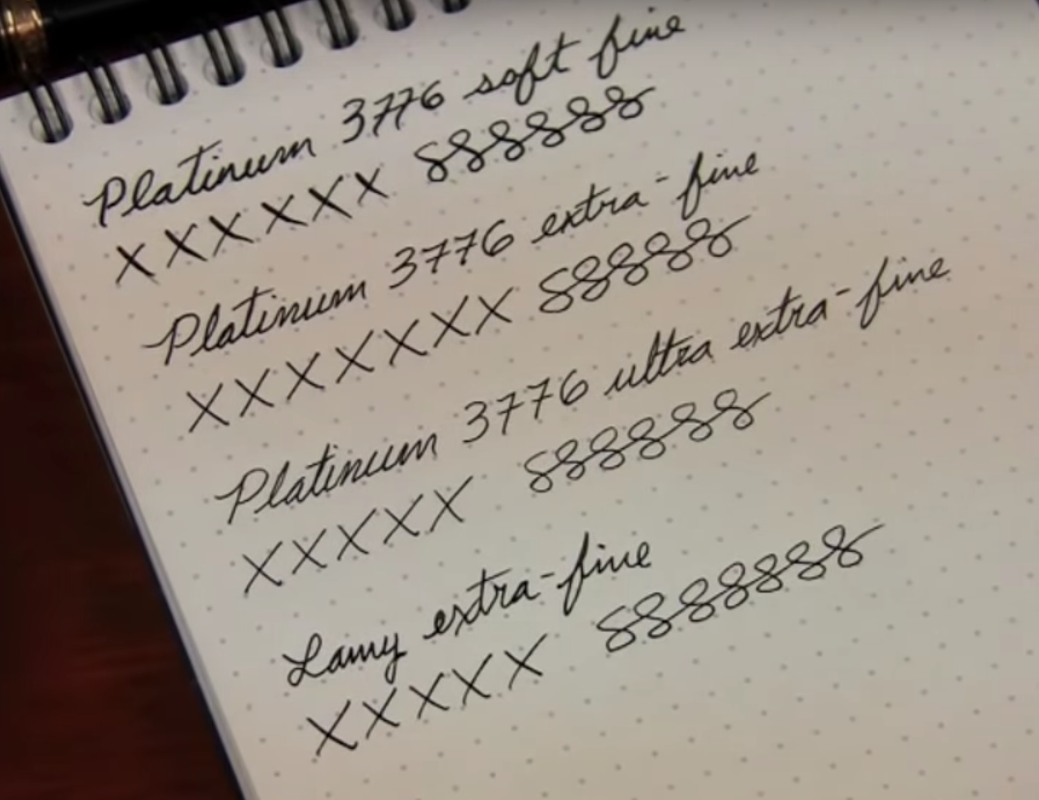 Platinum 3776 soft fine
XXXXXX 888888
Platinum 3776 extra-fine
XXXXXXX 88888
Platinum 3776 ultra extra-fine
XXXXX 888888
Lamy extra-fine
XXXXX 8888888